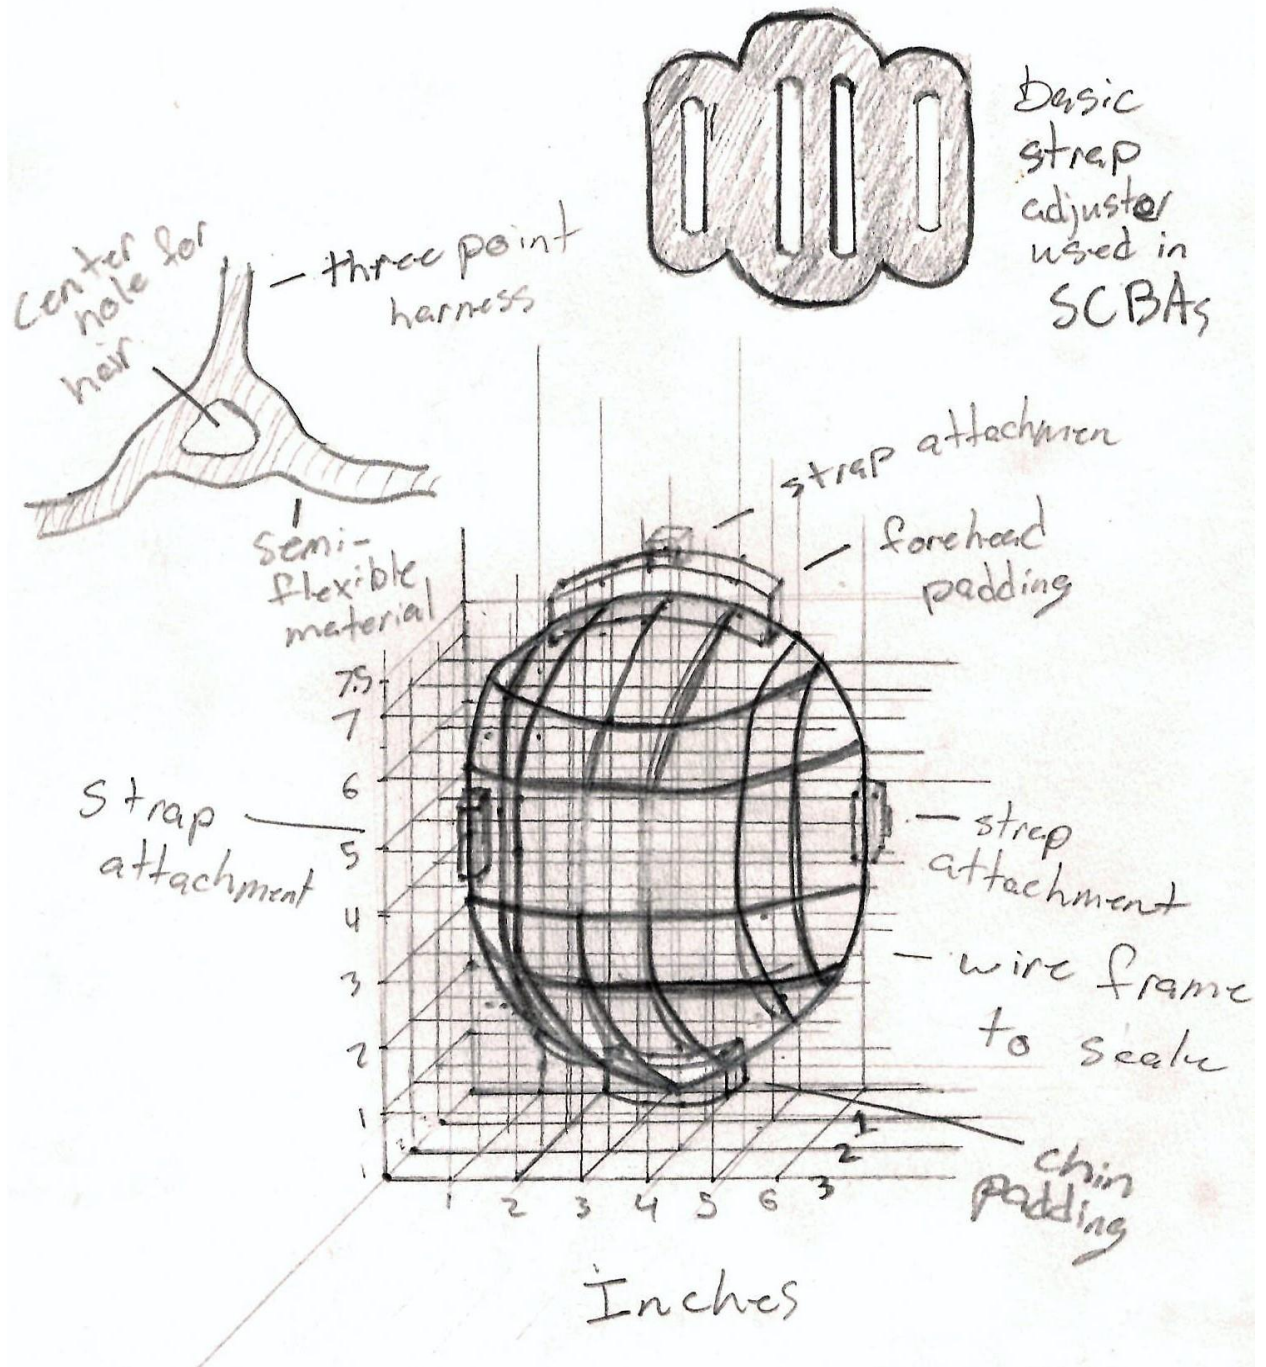 basic
strap
adjuster
used in
SCBAs
center
hole for
hair
three point
harness
semi-
flexible
material
strap attachmen
forehead
padding
7.5
7
6
5
4
3
2
1
strap
attachment
strap
attachment
wire frame
to scale
1
2
3
1 2 3 4 5 6
chin
padding
Inches